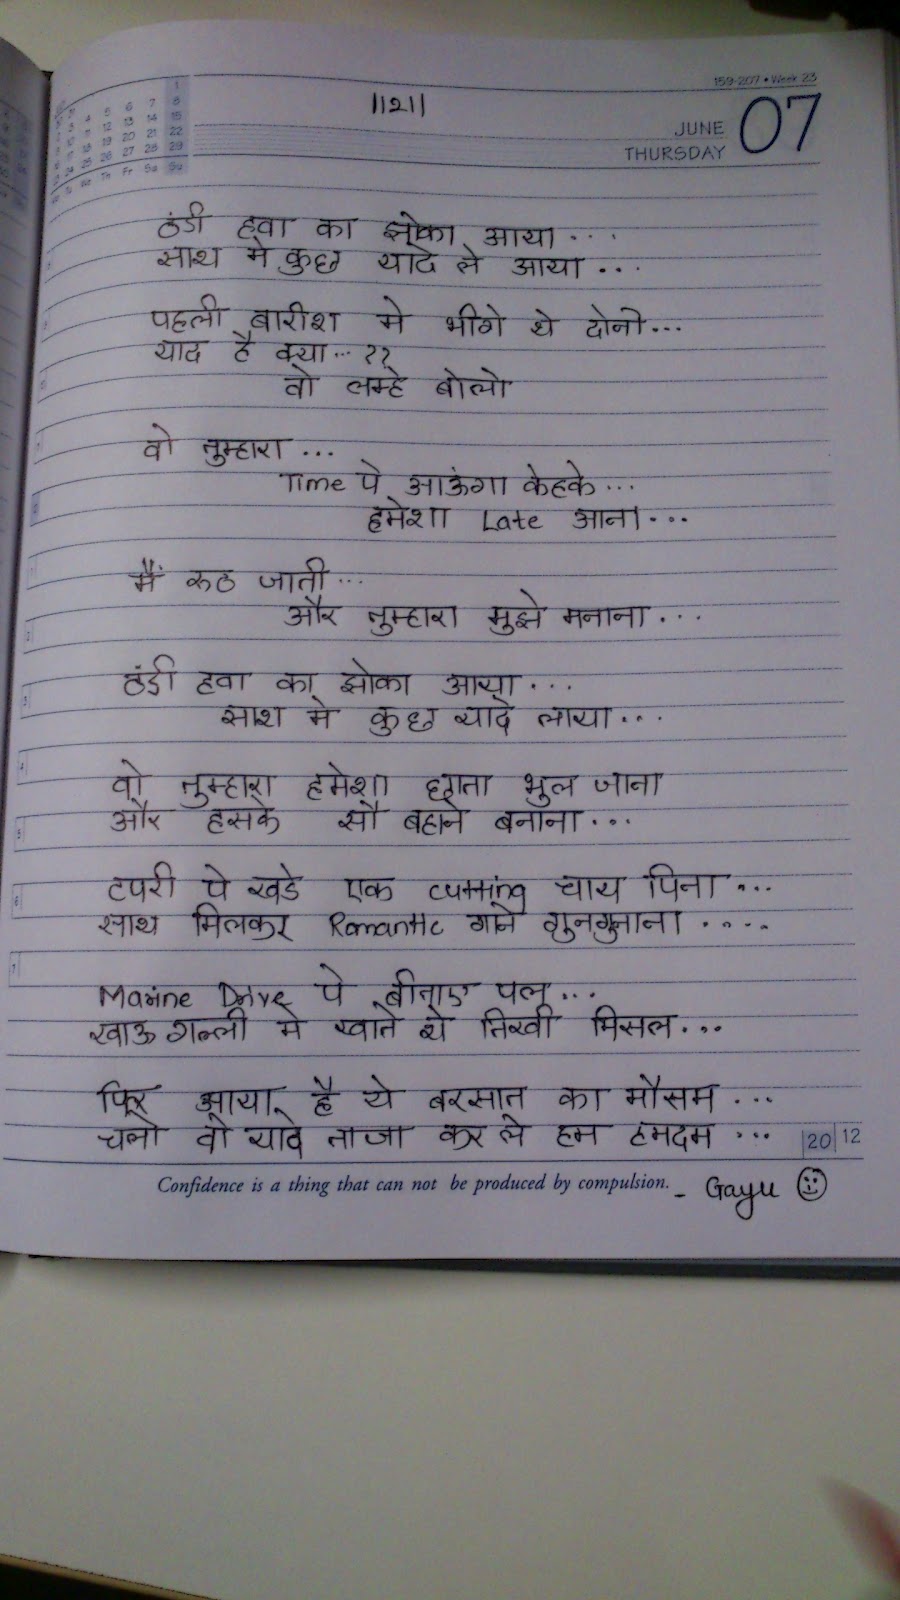 159-207 • Week 23
JUNE 07
THURSDAY
||श्री||
ठंडी हवा का झोका आया ....
साथ मे कुछ यादे ले आया ...
पहली बारीश मे भीगे थे दोनो...
याद है क्या... ??
वो लम्हे बोलो
वो तुम्हारा ...
Time पे आऊंगा केहके ...
हमेशा Late आना ...
मैं रुठ जाती ...
और तुम्हारा मुझे मनाना ...
ठंडी हवा का झोका आया ...
साथ मे कुछ यादे लाया ...
वो तुम्हारा हमेशा छाता भुल जाना
और हसके सौ बहाने बनाना ...
टपरी पे खडे एक cutting चाय पिना ...
साथ मिलकर Romantic गाने गुनगुनाना .....
Marine Drive पे बीताए पल ...
खाऊ गल्ली मे खाते थे तिखी मिसल ...
फिर आया है ये बरसात का मौसम ...
चलो वो यादे ताजा कर ले हम हमदम ...
20 12
Confidence is a thing that can not be produced by compulsion.
- Gayu